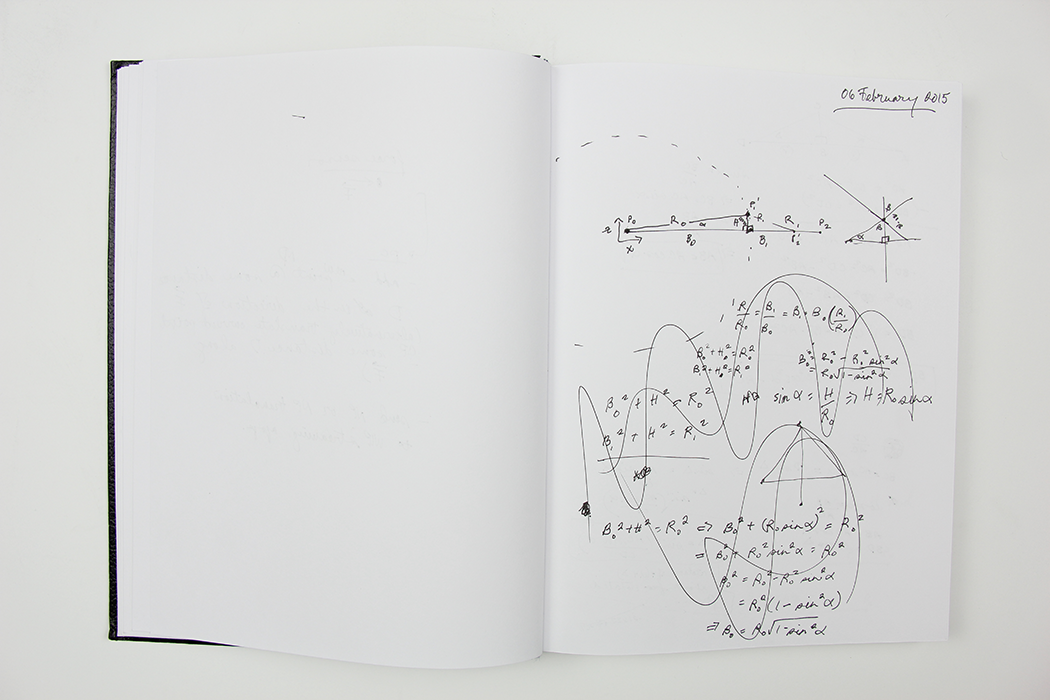 06 February 2015
P₀ R₀ α P₁' R₁ R₁ P₂
z x B₀ B₁ P₂'
B
α
R₁/R₀ = B₁/B₀ = B₁ · B₀ (R₁/R₀)
B₀² + H₀² = R₀²
B₀² = R₀² - R₀² sin²α
= R₀√1-sin²α
B₀² + H² = R₀²
sinα = H/R₀ ⇒ H = R₀ sinα
B₁² + H² = R₁²
B₀² + H² = R₀² ⇒ B₀² + (R₀ sinα)² = R₀²
= B₀² + R₀² sin²α = R₀²
B₀² = R₀² - R₀² sin²α
= R₀² (1 - sin²α)
⇒ B₀ = R₀√1-sin²α